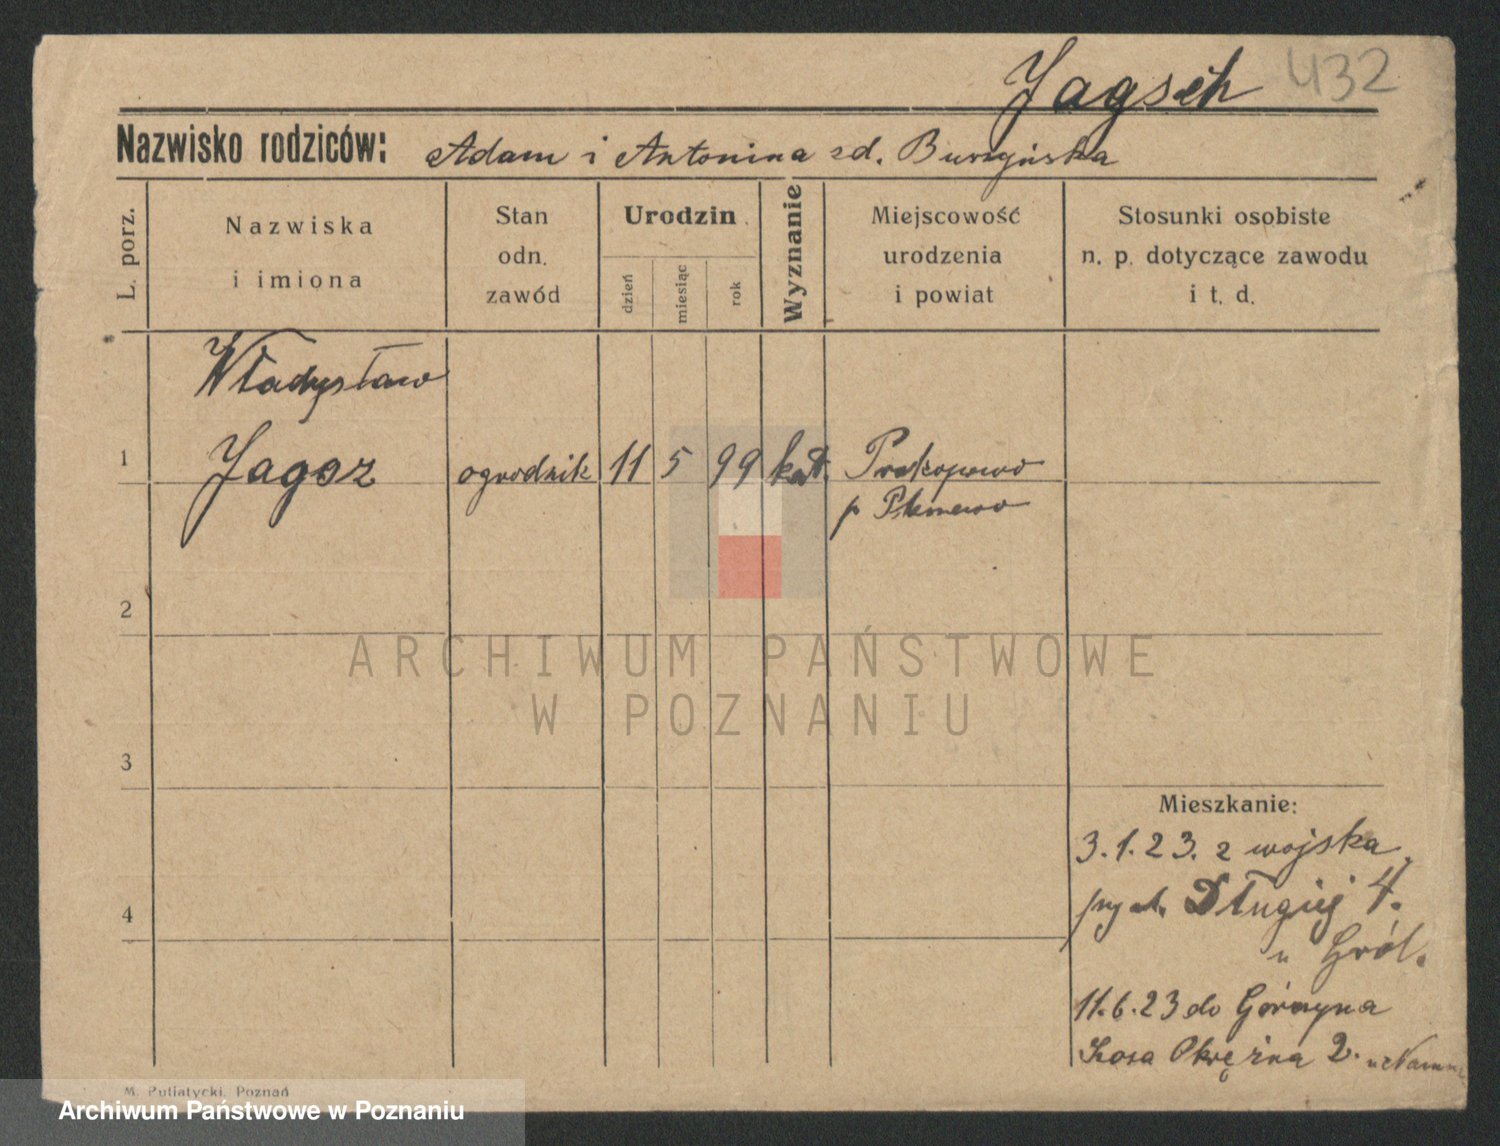 Jagsch 432
Nazwisko rodziców: Adam i Antonina zd. Burzyńska
L. porz.
Nazwiska
i imiona
Stan
odn.
zawód
Urodzin
dzień
miesiąc
rok
Wyznanie
Miejscowość
urodzenia
i powiat
Stosunki osobiste
n. p. dotyczące zawodu
i t. d.
Władysław
1 Jagsz ogrodnik 11 5 99 kat. Prokopowo
p
2
3
4
Mieszkanie:
3.1.23. z wojska
Długiej 4.
u Gról.
11.6.23 do Górczyna
Kosa Okrężna 2.
M. Putiatycki, Poznań
ARCHIWUM PAŃSTWOWE
W POZNANIU
Archiwum Państwowe w Poznaniu